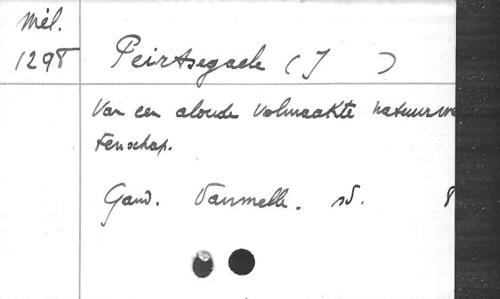 Mél.
1298
Peirtsegaele (J )
Van een aloude volmaakte natuurwe
tenschap.
Gand. Vanmelle. sd. 8